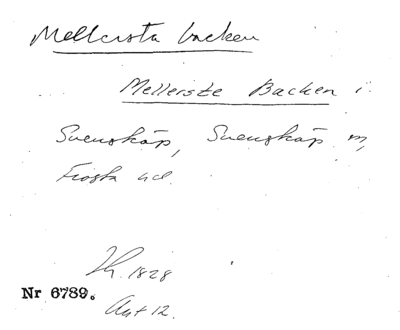 Mellersta backen
Mellerste Backen i
Svenskåp, Svenskåp m,
Frosta hd.
Lh. 1828
Nr 6789.
Akt 12.